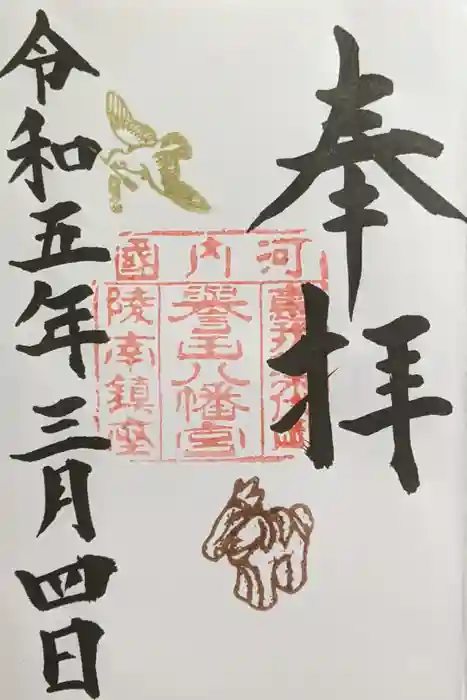 奉拝
河内國
惠我藻伏岡
譽田八幡宮
陵南鎮座
令和五年三月四日